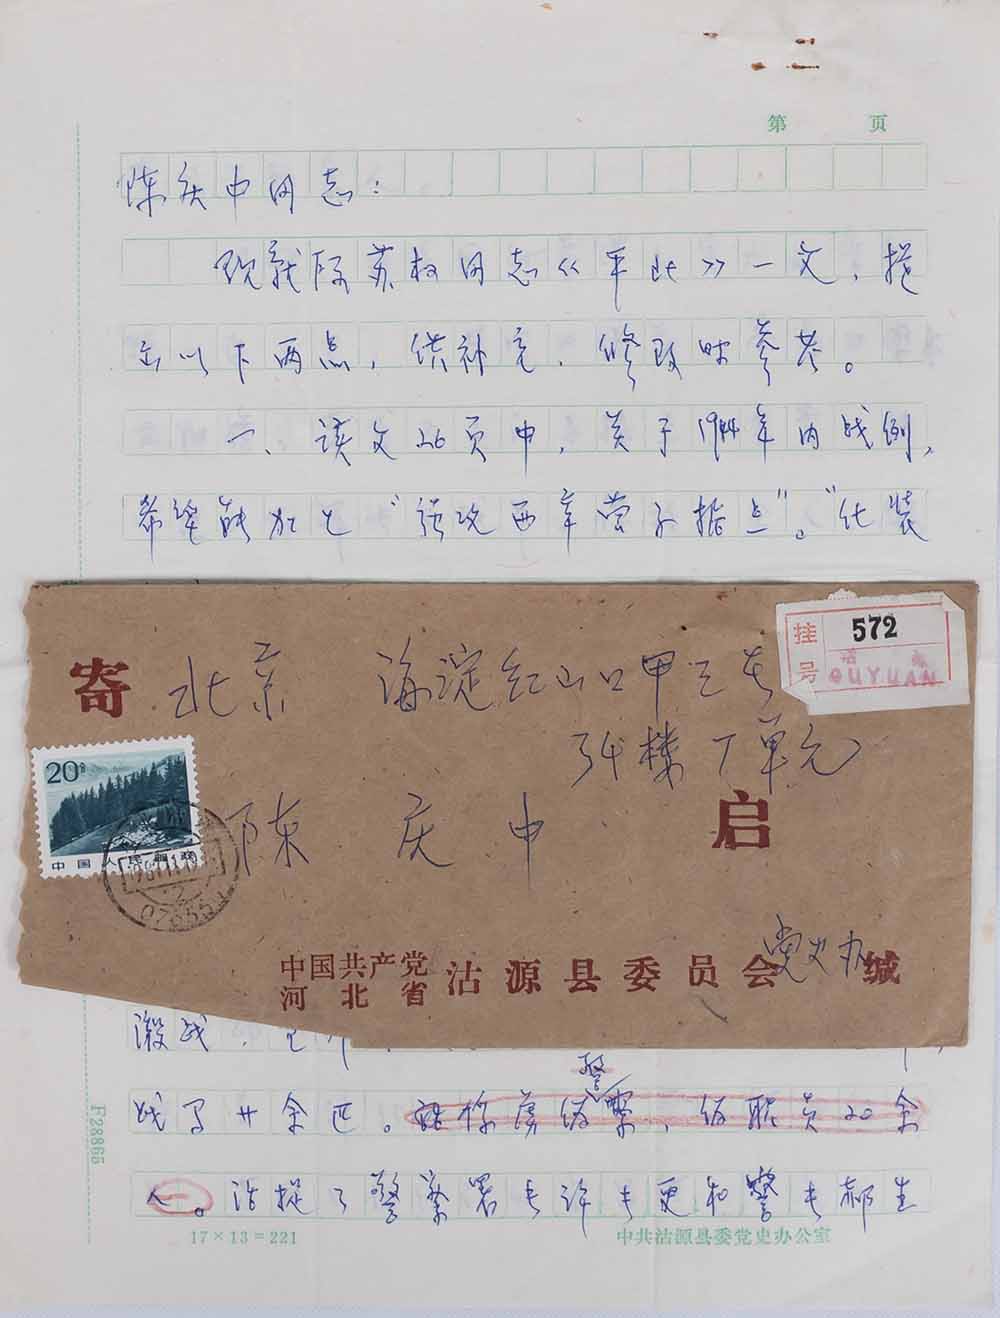 第 页
陈庆中同志：
现就陈苏权同志《平北》一文，提
出以下两点，供补充、修改时参考。
一、该文26页中，关于1944年内战例，
希望能加上“强攻西辛营子据点”。“化装
挂号
572
GUYUAN
寄
北京 海淀红山口甲三号
34楼丁单元
20分
中国人民邮政
076550
陈 庆 中 启
中国共产党
河北省
沽源县委员会党史办 缄
激战，
警
战马廿余匹。 伪职员20余
人。活捉了警察署长许长更和警长郝生
F28865
17×13=221
中共沽源县委党史办公室